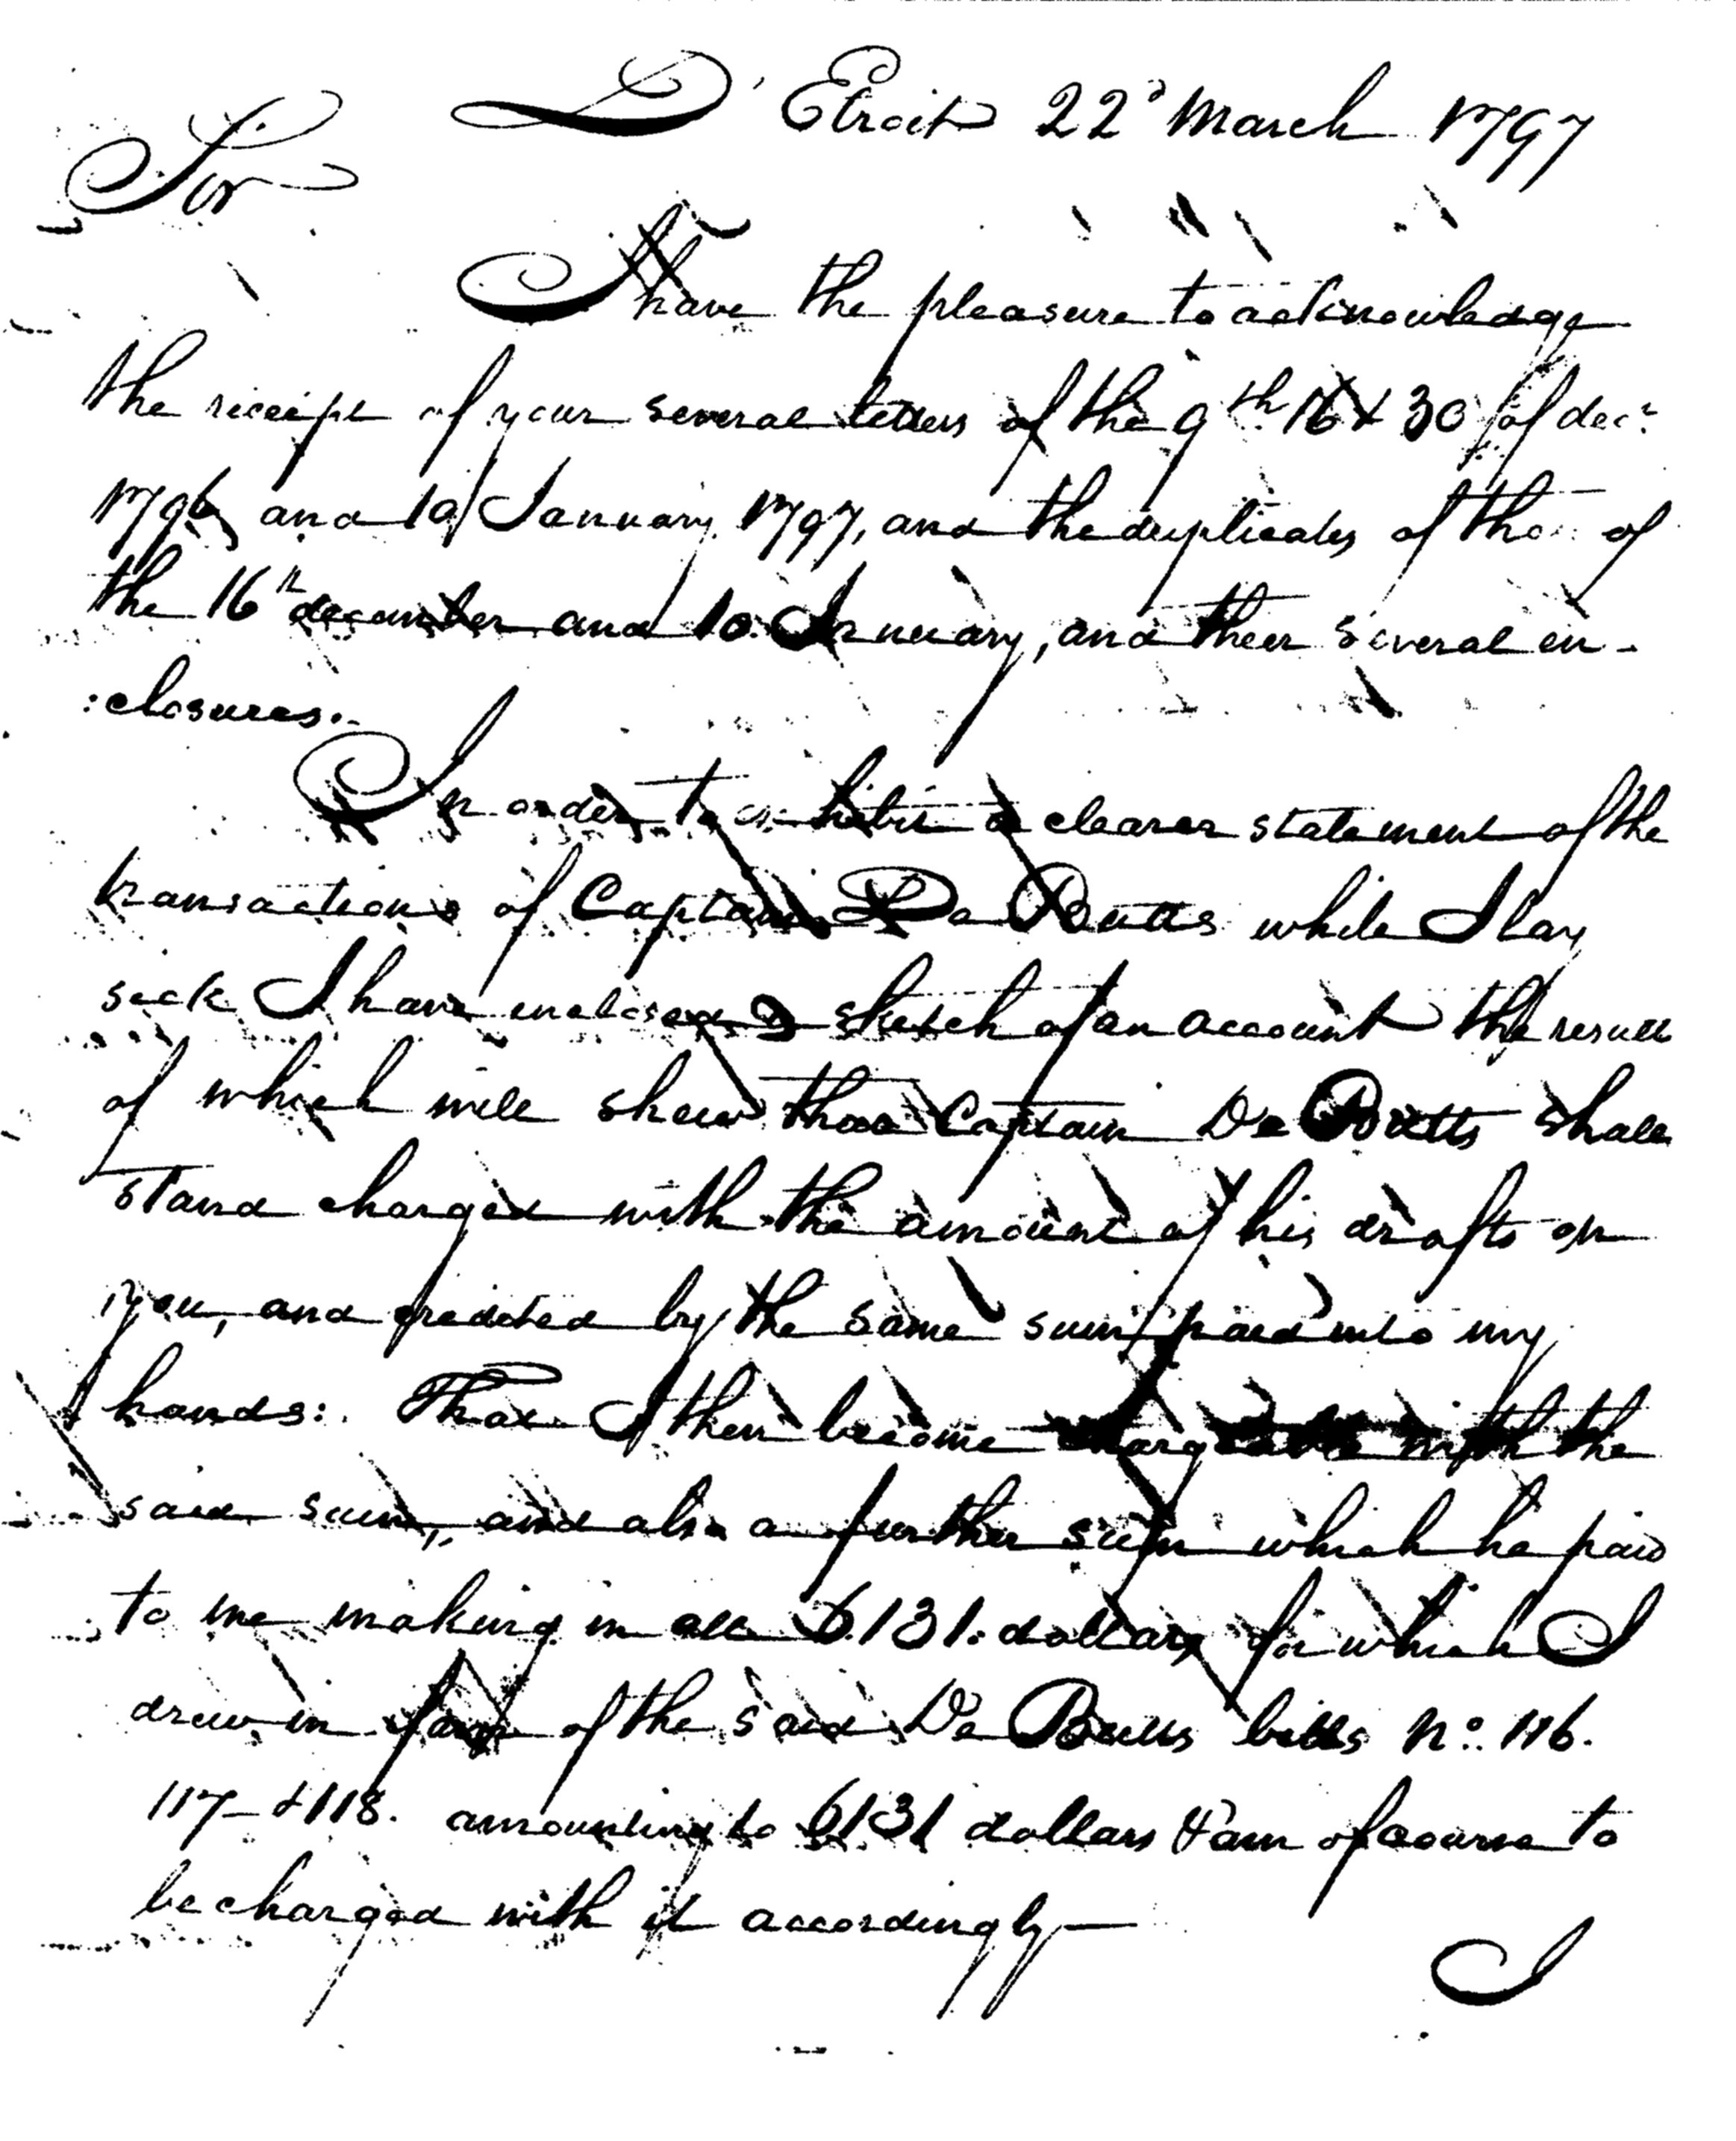 D'Etroit 22d March 1797
Sir
I have the pleasure to acknowledge
the receipt of your several letters of the 9th 16 & 30 of decr
1796 and 10 January 1797, and the duplicates of those of
the 16th december and 10. January, and their several en-
:closures.
In order to exhibit a clearer statement of the
transactions of Captain De Butts while I lay
sick I have inclosed a sketch of an account the result
of which will shew that Captain De Butts shall
stand charged with the amount of his drafts on
you, and credited by the same sum paid into my
hands: That I then become chargeable with the
said sum, and also a further sum which he paid
to me making in all 6.131: dollars for which I
drew in favor of the said De Butts bills No. 116.
117- & 118. amounting to 6131 dollars & am of course to
be charged with it accordingly—
I